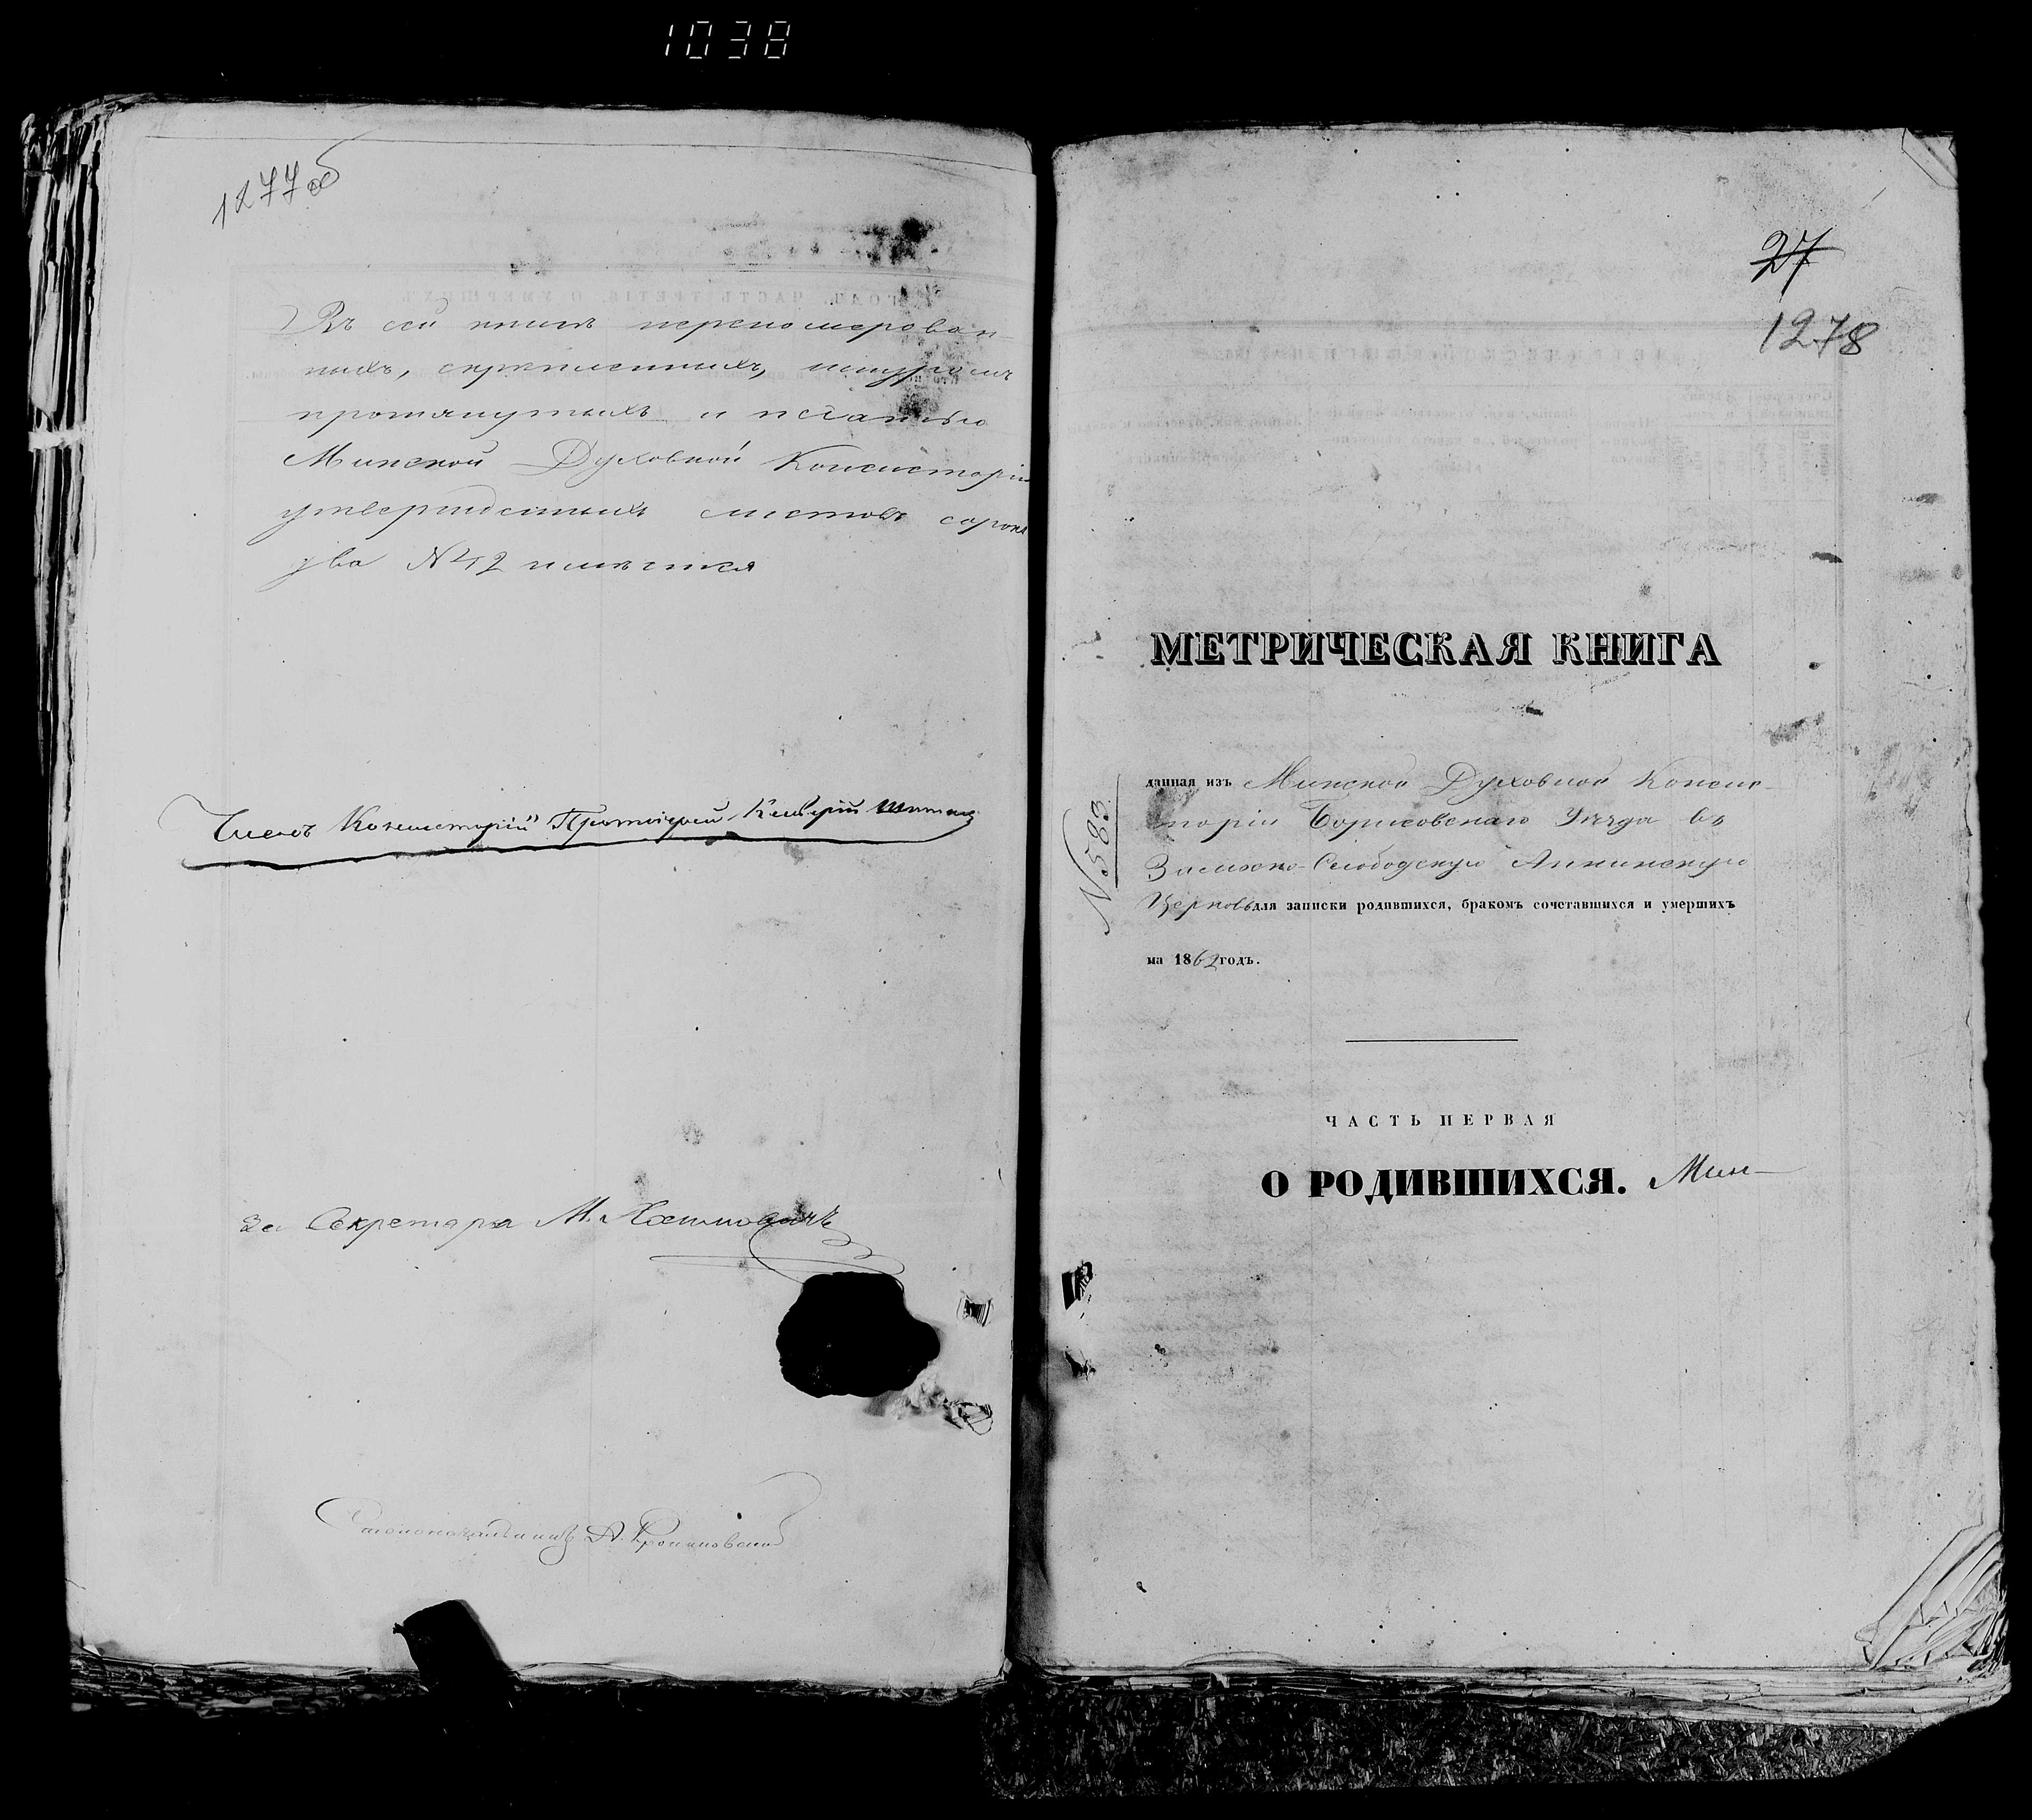 1038
1277 об
Въ сей книгѣ перенумерован-
ныхъ, скрѣпленныхъ, шнуромъ
протянутыхъ и печатью
Минской Духовной Консисторіи
утвержденныхъ листовъ сорокъ
два №42 имѣется
Членъ Консисторіи Протоіерей
За Секретаря М.
Столоначальникъ А.
27
1278
МЕТРИЧЕСКАЯ КНИГА
№583
данная изъ Минской Духовной Конси-
сторіи Борисовскаго Уѣзда въ
Слободскую Аннинскую
Церковь для записки родившихся, бракомъ сочетавшихся и умершихъ
на 1862 годъ.
ЧАСТЬ ПЕРВАЯ
О РОДИВШИХСЯ. Мин-